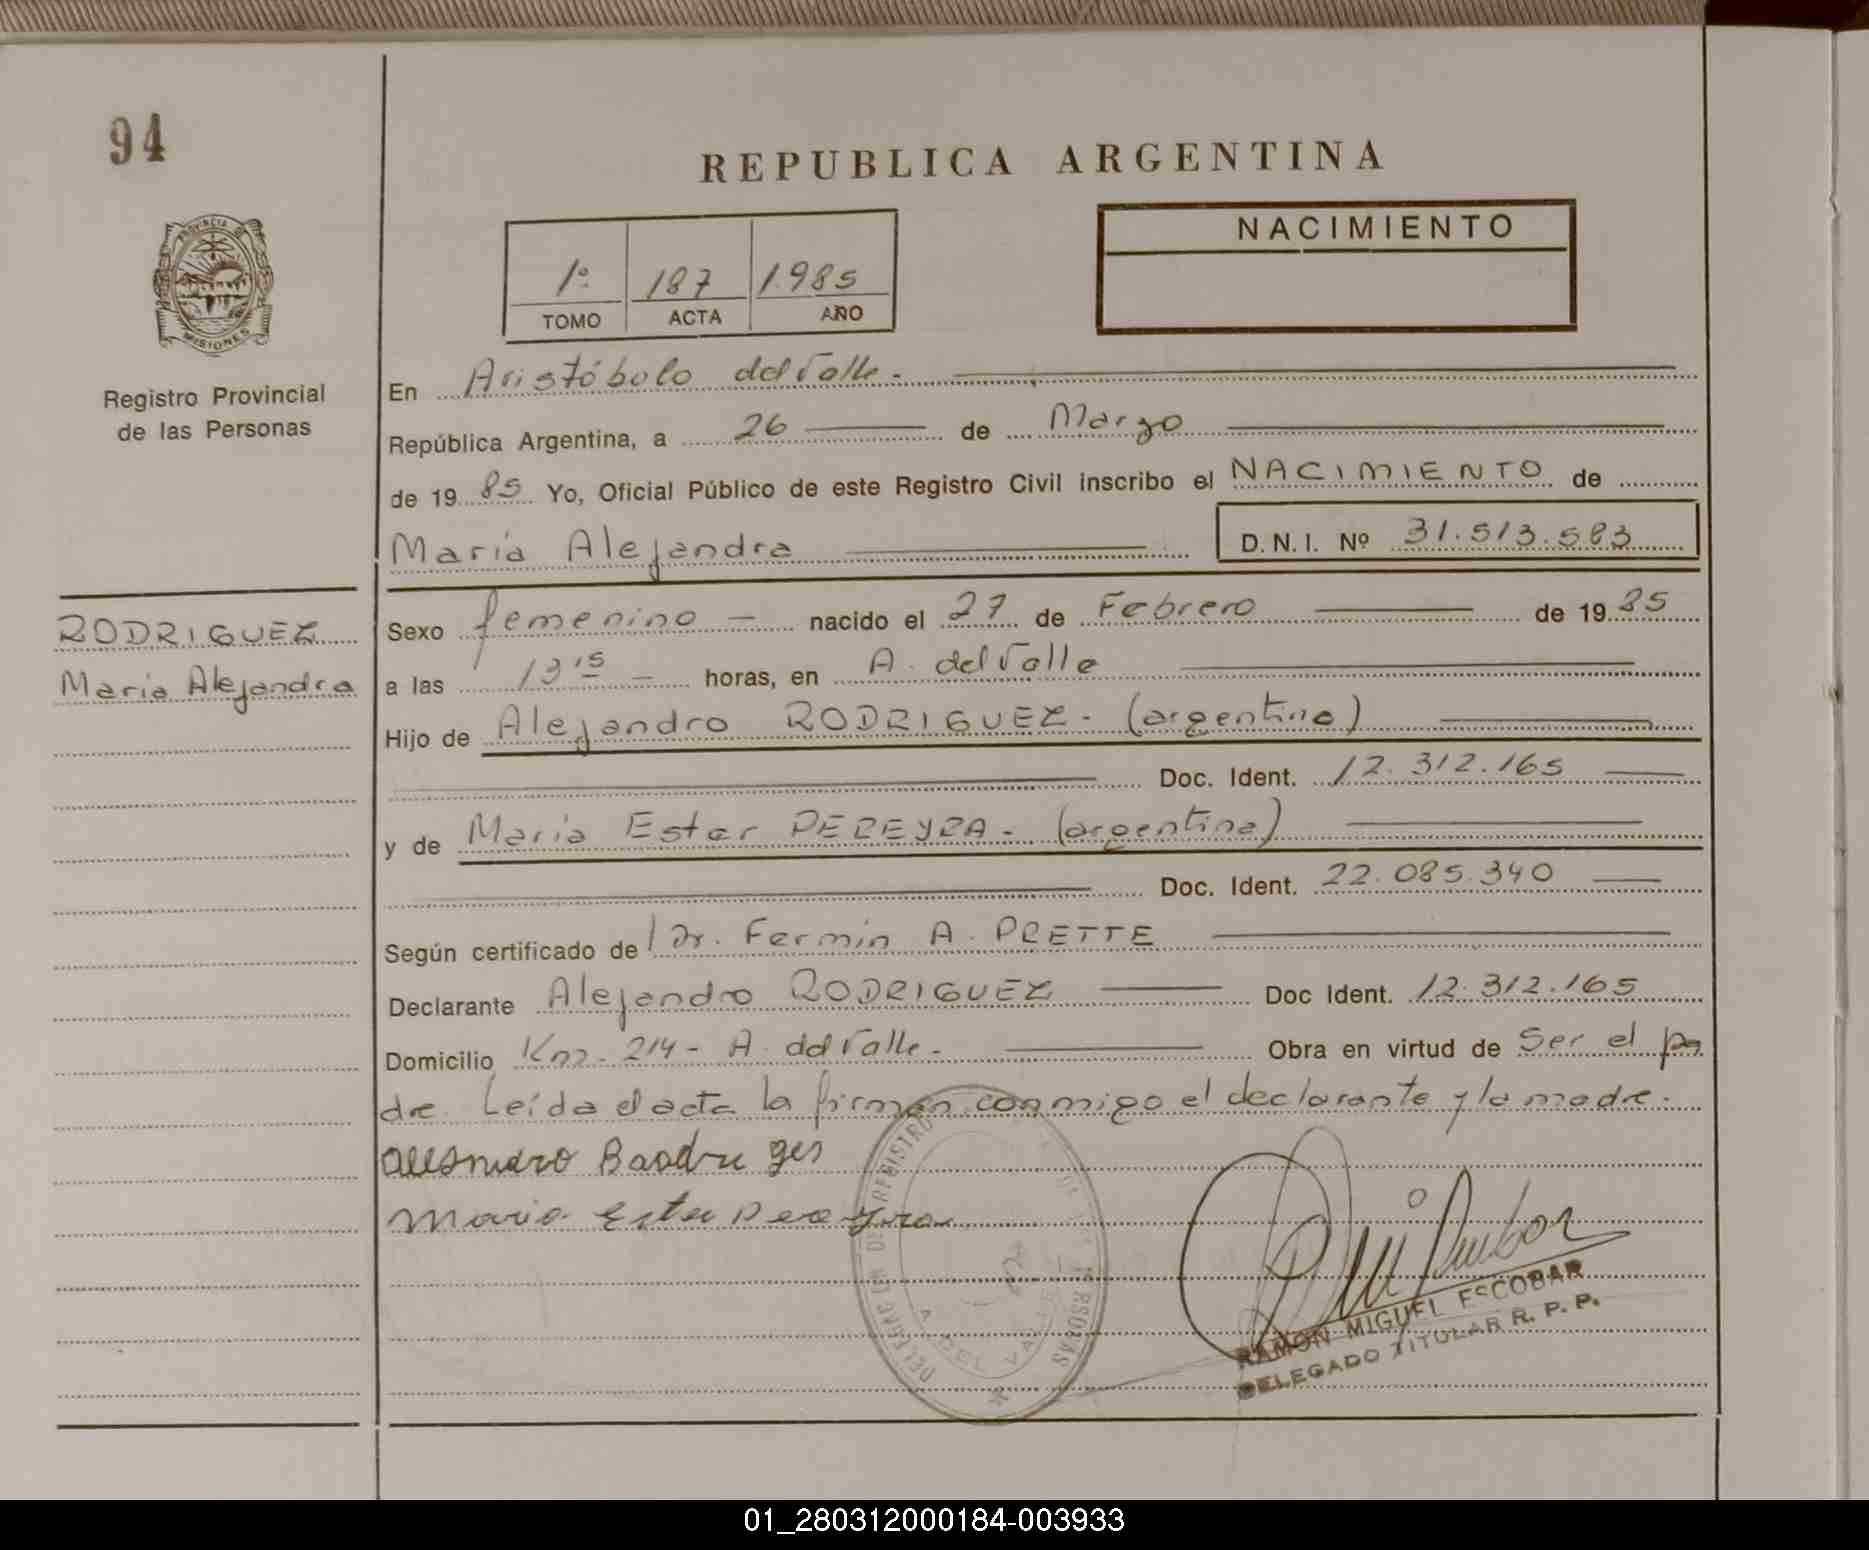 94
REPUBLICA ARGENTINA
PROVINCIA DE
MISIONES
Registro Provincial
de las Personas
1º 187 1.985
TOMO ACTA AÑO
NACIMIENTO
En Aristóbolo del Valle.
República Argentina, a 26 de Marzo
de 1985 Yo, Oficial Público de este Registro Civil inscribo el NACIMIENTO de
María Alejandra D.N.I. Nº 31.513.583
RODRIGUEZ
María Alejandra
Sexo femenino nacido el 27 de Febrero de 1985
a las 13 15 horas, en A. del Valle
Hijo de Alejandro RODRIGUEZ - (argentino)
Doc. Ident. 12.312.165
y de María Ester PEREYRA - (argentina)
Doc. Ident. 22.085.340
Según certificado de Dr. Fermín A. PRETTE
Declarante Alejandro RODRIGUEZ Doc Ident. 12.312.165
Domicilio Km. 214 - A. del Valle - Obra en virtud de Ser el pa
dre. Leída el acta la firman conmigo el declarante y la madre.
María Ester Pereyra
DELEGACION DE REGISTRO DE LAS PERSONAS
A. DEL VALLE
RAMON MIGUEL ESCOBAR
DELEGADO TITULAR R. P. P.
01_280312000184-003933